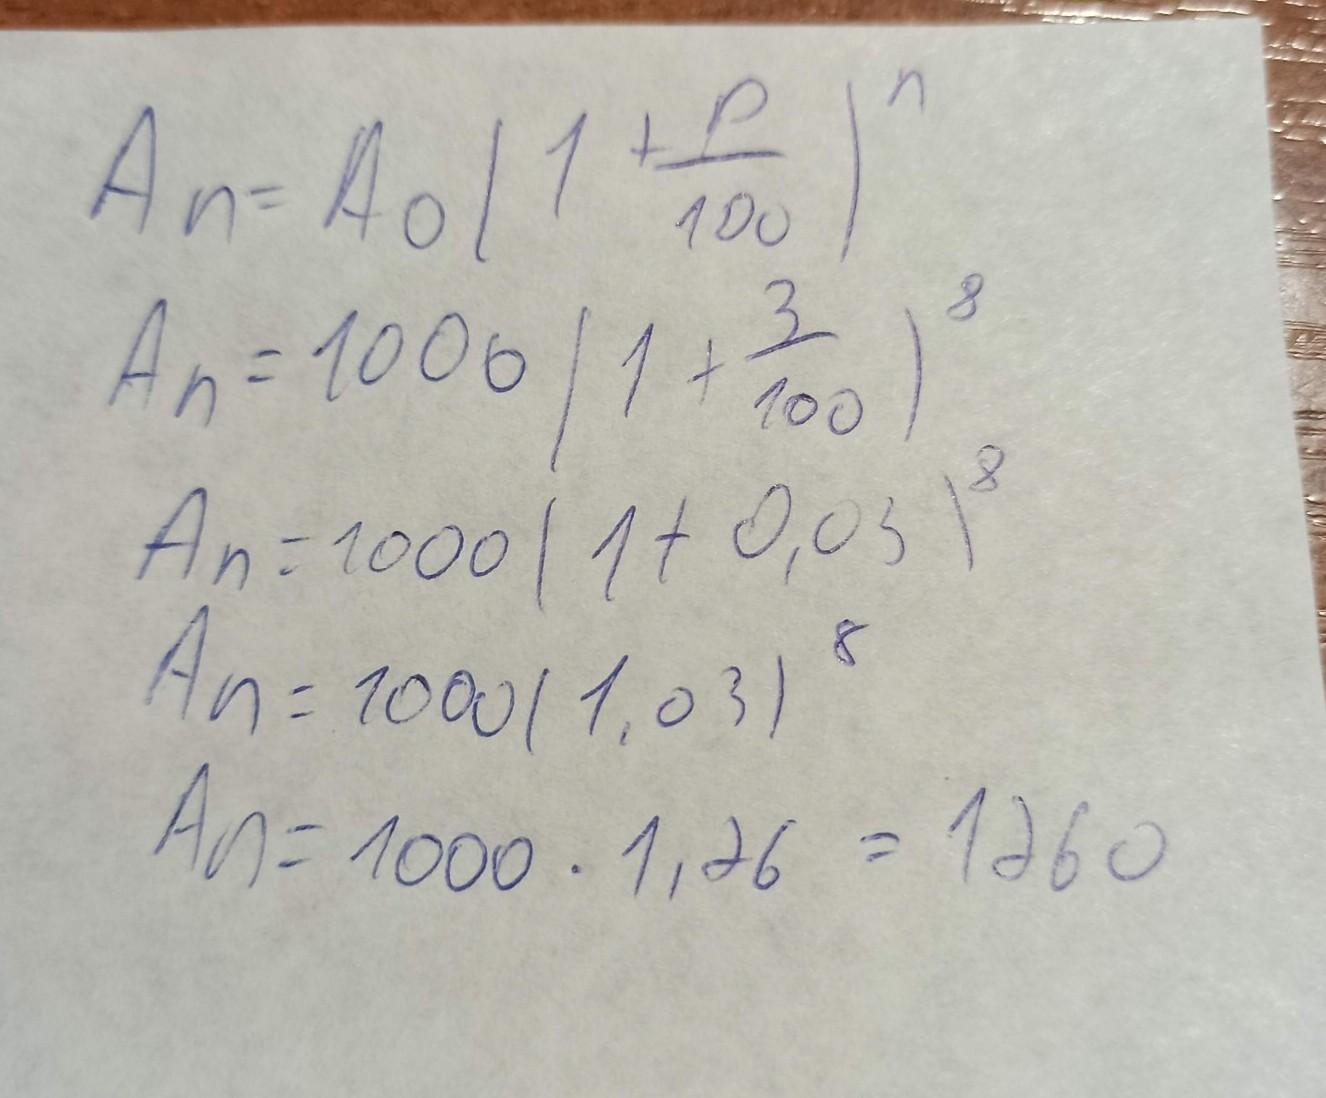 An = A0(1 + p/100)^n
An = 1000(1 + 3/100)^8
An = 1000(1 + 0,03)^8
An = 1000(1,03)^8
An = 1000 · 1,26 = 1260